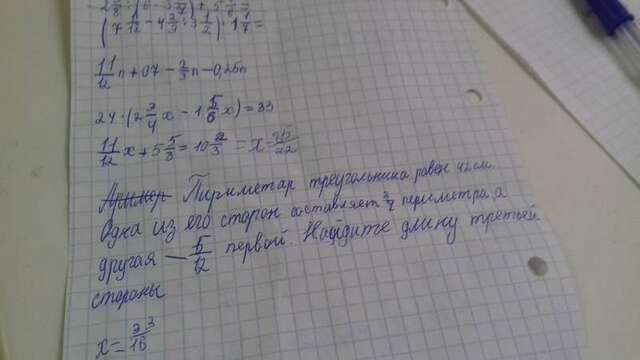 (7 11/12 - 4 2/3 : 3 1/2) · 1 1/7 =
11/12 n + 0,7 - 2/3 n - 0,25n
24 · (2 3/4 x - 1 5/6 x) = 33
11/12 x + 5 5/8 = 10 2/3 = x =
Периметар треугольника равен 42см.
Одна из его сторон составляет 3/7 периметра, а
другая — 5/12 первой. Найдите длину третьей
стороны